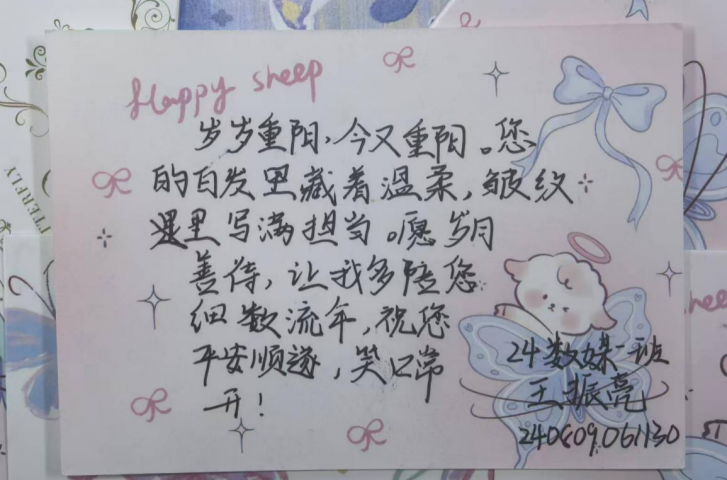 Happy sheep
岁岁重阳，今又重阳。您
的白发里藏着温柔，皱纹
里写满担当。愿岁月
善待，让我多陪您
细数流年，祝您
平安顺遂，笑口常
开！
24数媒一班
王振亮
240609061130
TERFLY
heep